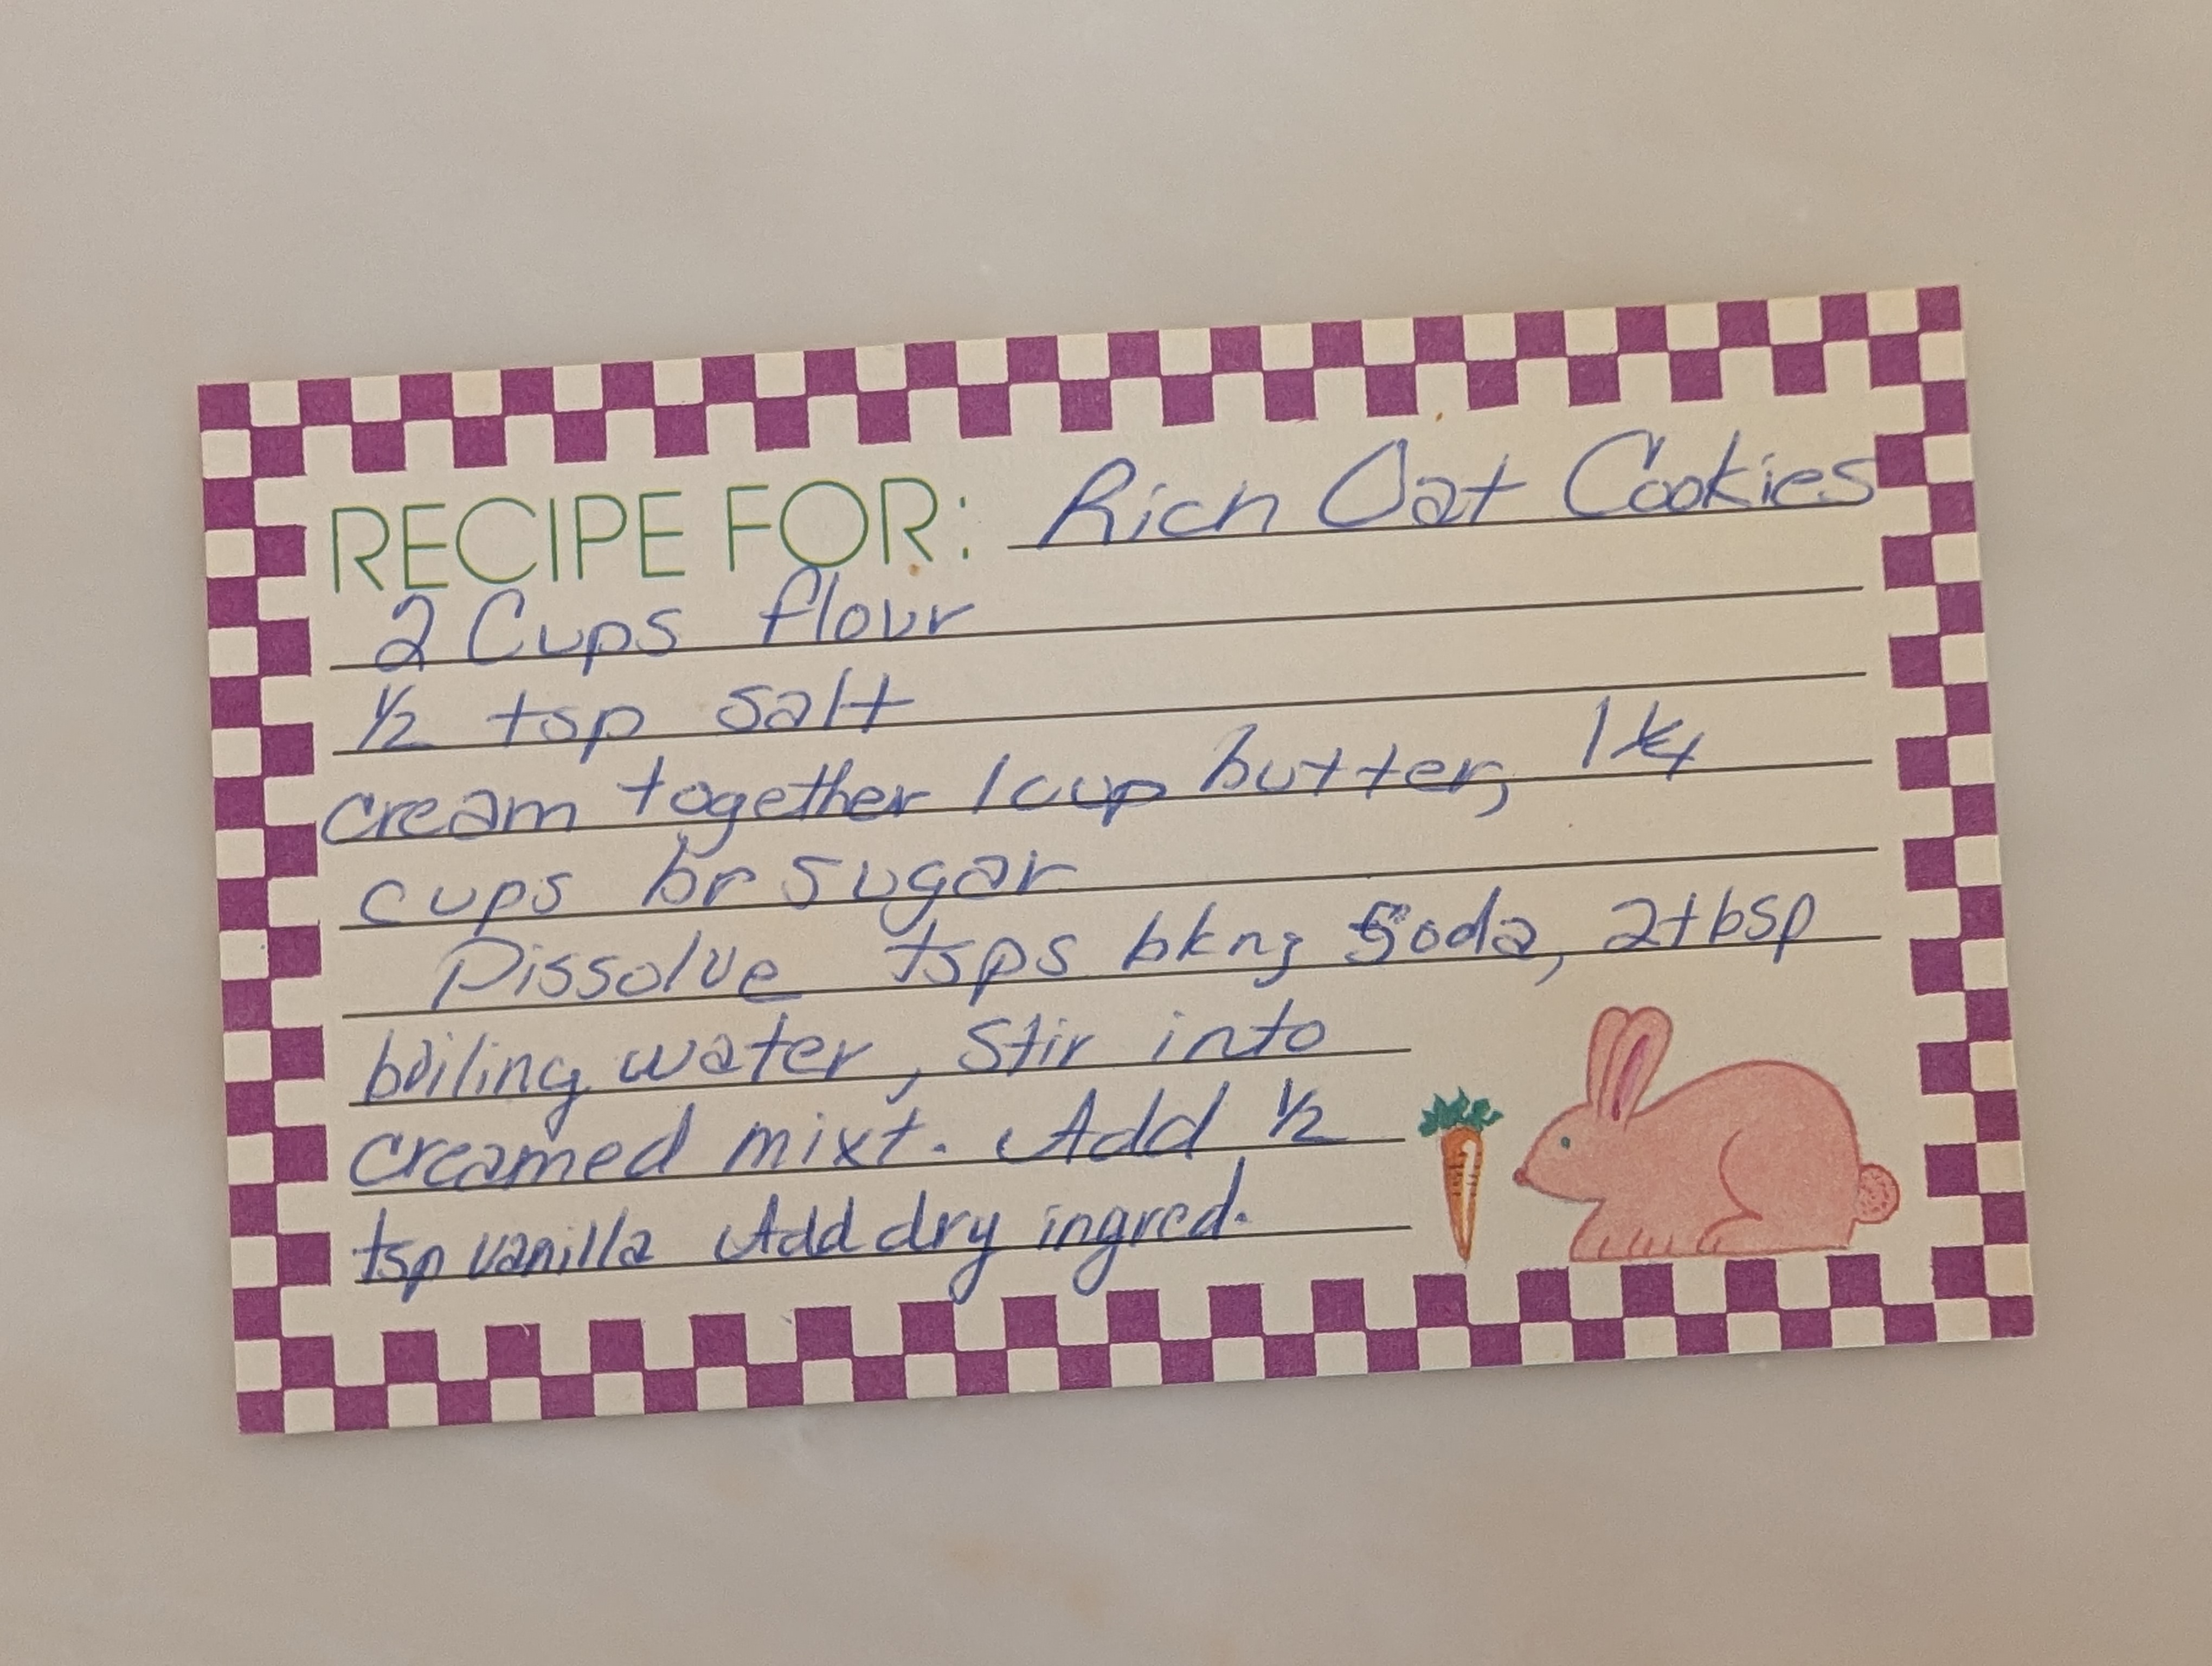 RECIPE FOR: Rich Oat Cookies
2 Cups flour
½ tsp salt
cream together 1 cup butter, 1 ¼
cups br sugar
Dissolve tsps bkng Soda, 2 tbsp
boiling water, Stir into
creamed mixt. Add ½
tsp vanilla Add dry ingred.